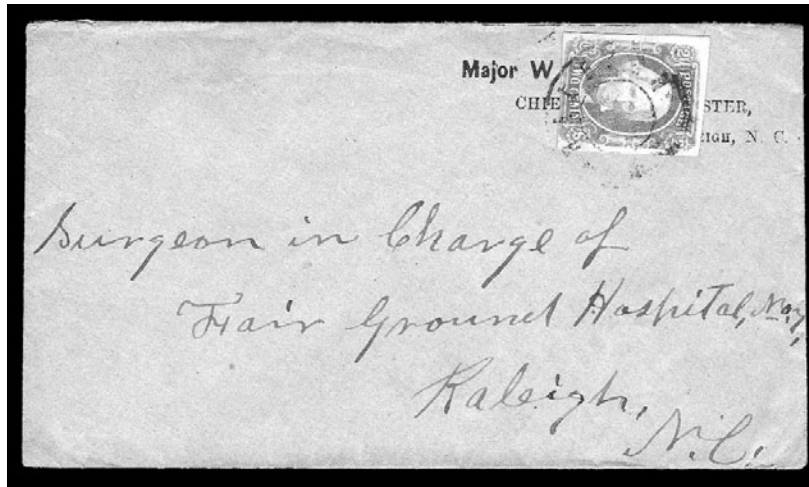 Major W
CHIE STER,
EIGH, N. C.
Surgeon in Charge of
Fair Ground Hospital, No. 7,
Raleigh,
N.C.